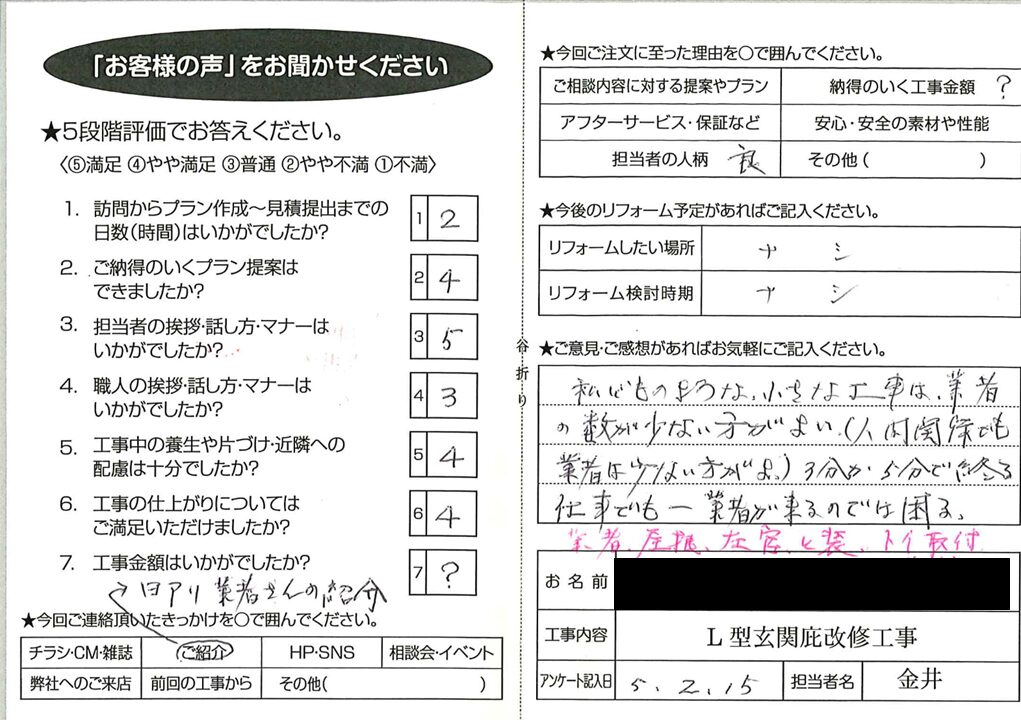 「お客様の声」をお聞かせください
★5段階評価でお答えください。
〈⑤満足 ④やや満足 ③普通 ②やや不満 ①不満〉
1. 訪問からプラン作成～見積提出までの
日数(時間)はいかがでしたか?
1 2
2. ご納得のいくプラン提案は
できましたか?
2 4
3. 担当者の挨拶・話し方・マナーは
いかがでしたか?
3 5
4. 職人の挨拶・話し方・マナーは
いかがでしたか?
4 3
5. 工事中の養生や片づけ・近隣への
配慮は十分でしたか?
5 4
6. 工事の仕上がりについては
ご満足いただけましたか?
6 4
7. 工事金額はいかがでしたか?
7 ?
業者さんの紹介
★今回ご連絡頂いたきっかけを〇で囲んでください。
チラシ・CM・雑誌 ご紹介 HP・SNS 相談会・イベント
弊社へのご来店 前回の工事から その他( )
谷折り
★今回ご注文に至った理由を〇で囲んでください。
ご相談内容に対する提案やプラン 納得のいく工事金額 ?
アフターサービス・保証など 安心・安全の素材や性能
担当者の人柄 良 その他( )
★今後のリフォーム予定があればご記入ください。
リフォームしたい場所 ナシ
リフォーム検討時期 ナシ
★ご意見・ご感想があればお気軽にご記入ください。
私どものような、小さな工事は、業者
の数が少ない方がよい。(人間関係でも
業者は少ない方がよい)3分か5分で終る
仕事でも一業者が来るのでは困る。
業者、屋根、左官、 装、トイ取付
お名前
工事内容 L型玄関庇改修工事
アンケート記入日 5.2.15 担当者名 金井